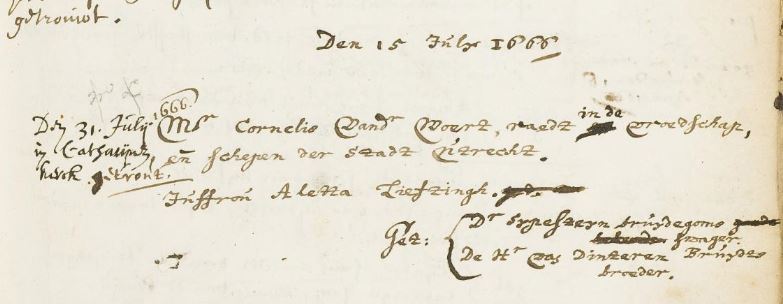 getrouwt.
Den 15 July 1666
Den 31. July 1666.
in Catharijne
kerck getrout.
Mr Cornelis Vander Voort, raedt in de vroedschap,
en schepen der stadt Utrecht.
Juffrou Aletta Lieftingh.
Get: Dr Erpestern bruydegoms
swager.
De Hr van Dinteren Bruydts
broeder.